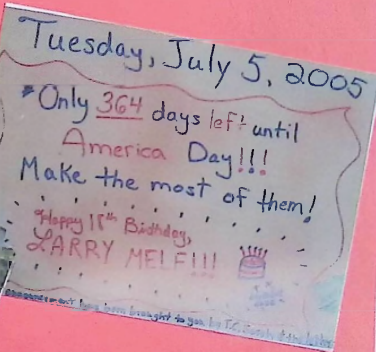 Tuesday, July 5, 2005
*Only 364 days left until
America Day!!!
Make the most of them!
Happy 18th Birthday,
LARRY MELF!!!
brought to you by